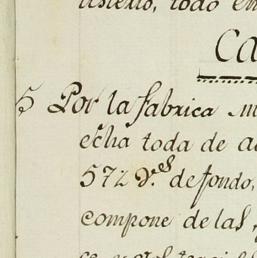 todo en
Ca
5 Por la fabrica
echa toda de
572 v.s de fondo,
compone de las